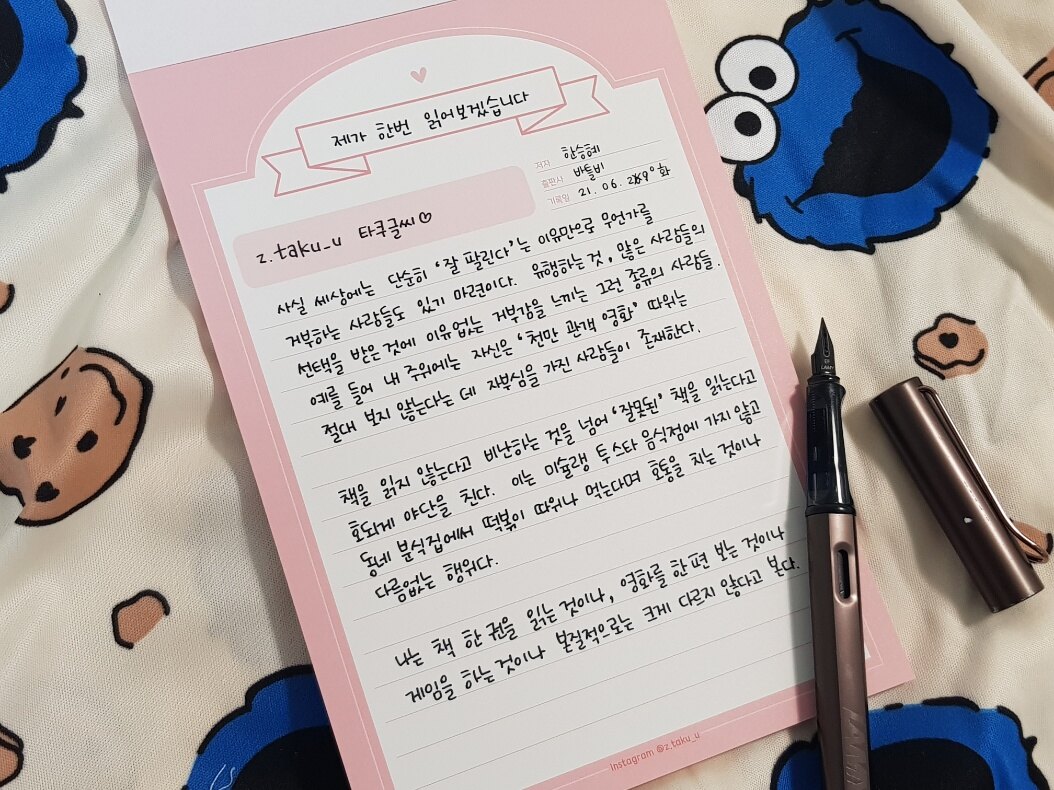 제가 한번 읽어보겠습니다
저자 한승혜
출판사 바틀비
기록일 21. 06. 29° 화
z.taku_u 타쿠글씨♡
사실 세상에는 단순히 '잘 팔린다'는 이유만으로 무언가를
거부하는 사람들도 있기 마련이다. 유행하는 것, 많은 사람들의
선택을 받은 것에 이유없는 거부감을 느끼는 그런 종류의 사람들.
예를 들어 내 주위에는 자신은 '천만 관객 영화' 따위는
절대 보지 않는다는 데 자부심을 가진 사람들이 존재한다.
책을 읽지 않는다고 비난하는 것을 넘어 '잘못된' 책을 읽는다고
호되게 야단을 친다. 이는 미슐랭 투스타 음식점에 가지 않고
동네 분식집에서 떡볶이 따위나 먹는다며 호통을 치는 것이나
다름없는 행위다.
나는 책 한 권을 읽는 것이나, 영화를 한 편 보는 것이나
게임을 하는 것이나 본질적으로는 크게 다르지 않다고 본다.
Instagram @z.taku_u
LAMY